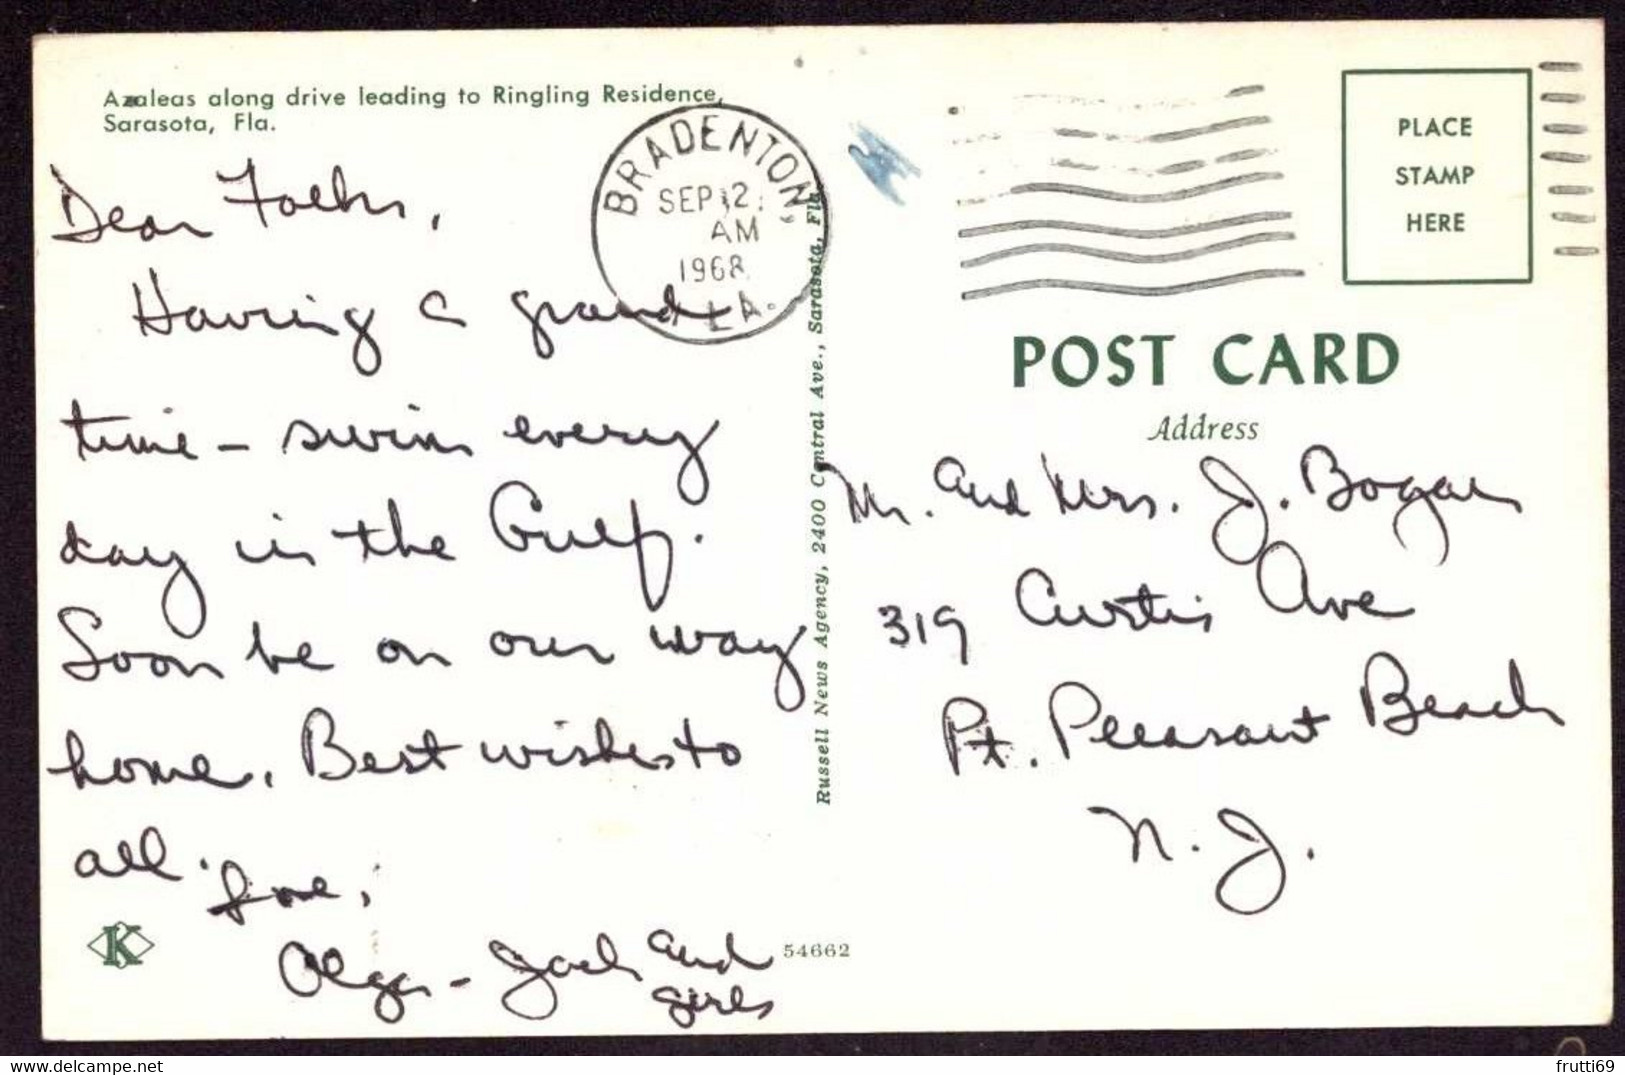 Azaleas along drive leading to Ringling Residence,
Sarasota, Fla.
BRADENTON,
SEP 12
AM
1968
FLA.
PLACE
STAMP
HERE
POST CARD
Address
Dear Folks,
Having a grand
time - swim every
day in the Gulf.
Soon be on our way
home. Best wishes to
all.
Love,
Olga - Jack and
girls
Russell News Agency, 2400 Central Ave., Sarasota, Fla.
Mr. and Mrs. J. Bogan
319 Curtis Ave
Pt. Pleasant Beach
N. J.
K
54662
delcampe.net
frutti69